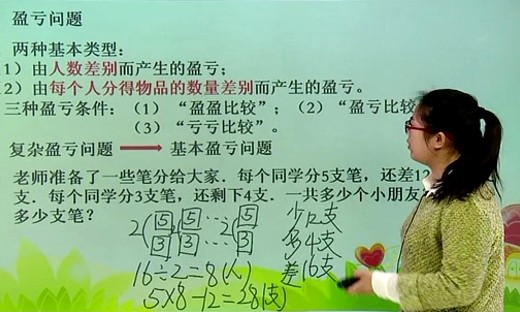 盈亏问题
两种基本类型：
1）由人数差别而产生的盈亏；
（2）由每个人分得物品的数量差别而产生的盈亏。
三种盈亏条件：（1）“盈盈比较”；（2）“盈亏比较
（3）“亏亏比较”。
复杂盈亏问题 基本盈亏问题
老师准备了一些笔分给大家．每个同学分5支笔，还差12
支．每个同学分3支笔，还剩下4支．一共多少个小朋友
多少支笔？
2 5 5 … 2 5
3 3 … 3
少12支
多4支
差16支
16÷2=8(人)
5×8-12=28(支)